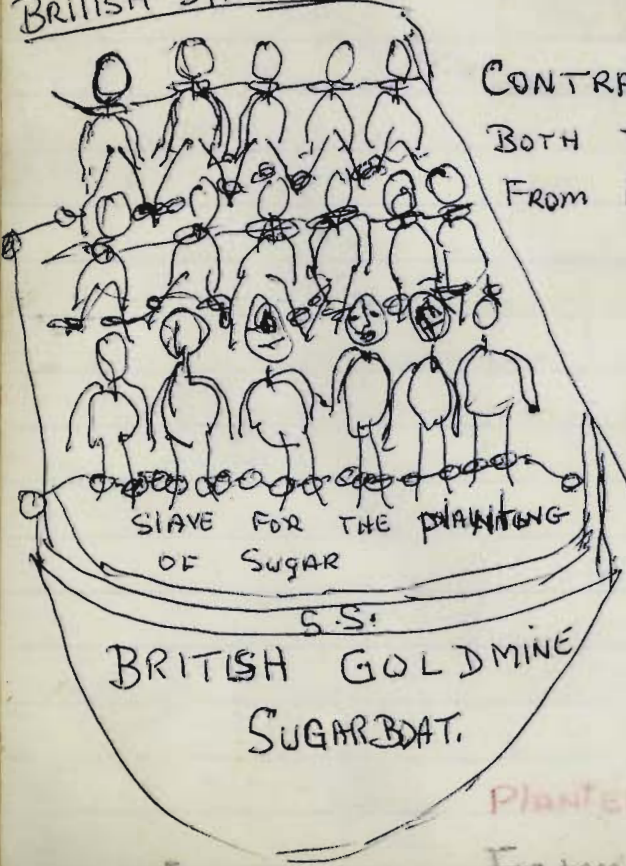 BRITISH
CONTRA
BOTH
FROM
SLAVE FOR THE PLANTING
OF SUGAR
S.S.
BRITISH GOLDMINE
SUGARBOAT.
Plante